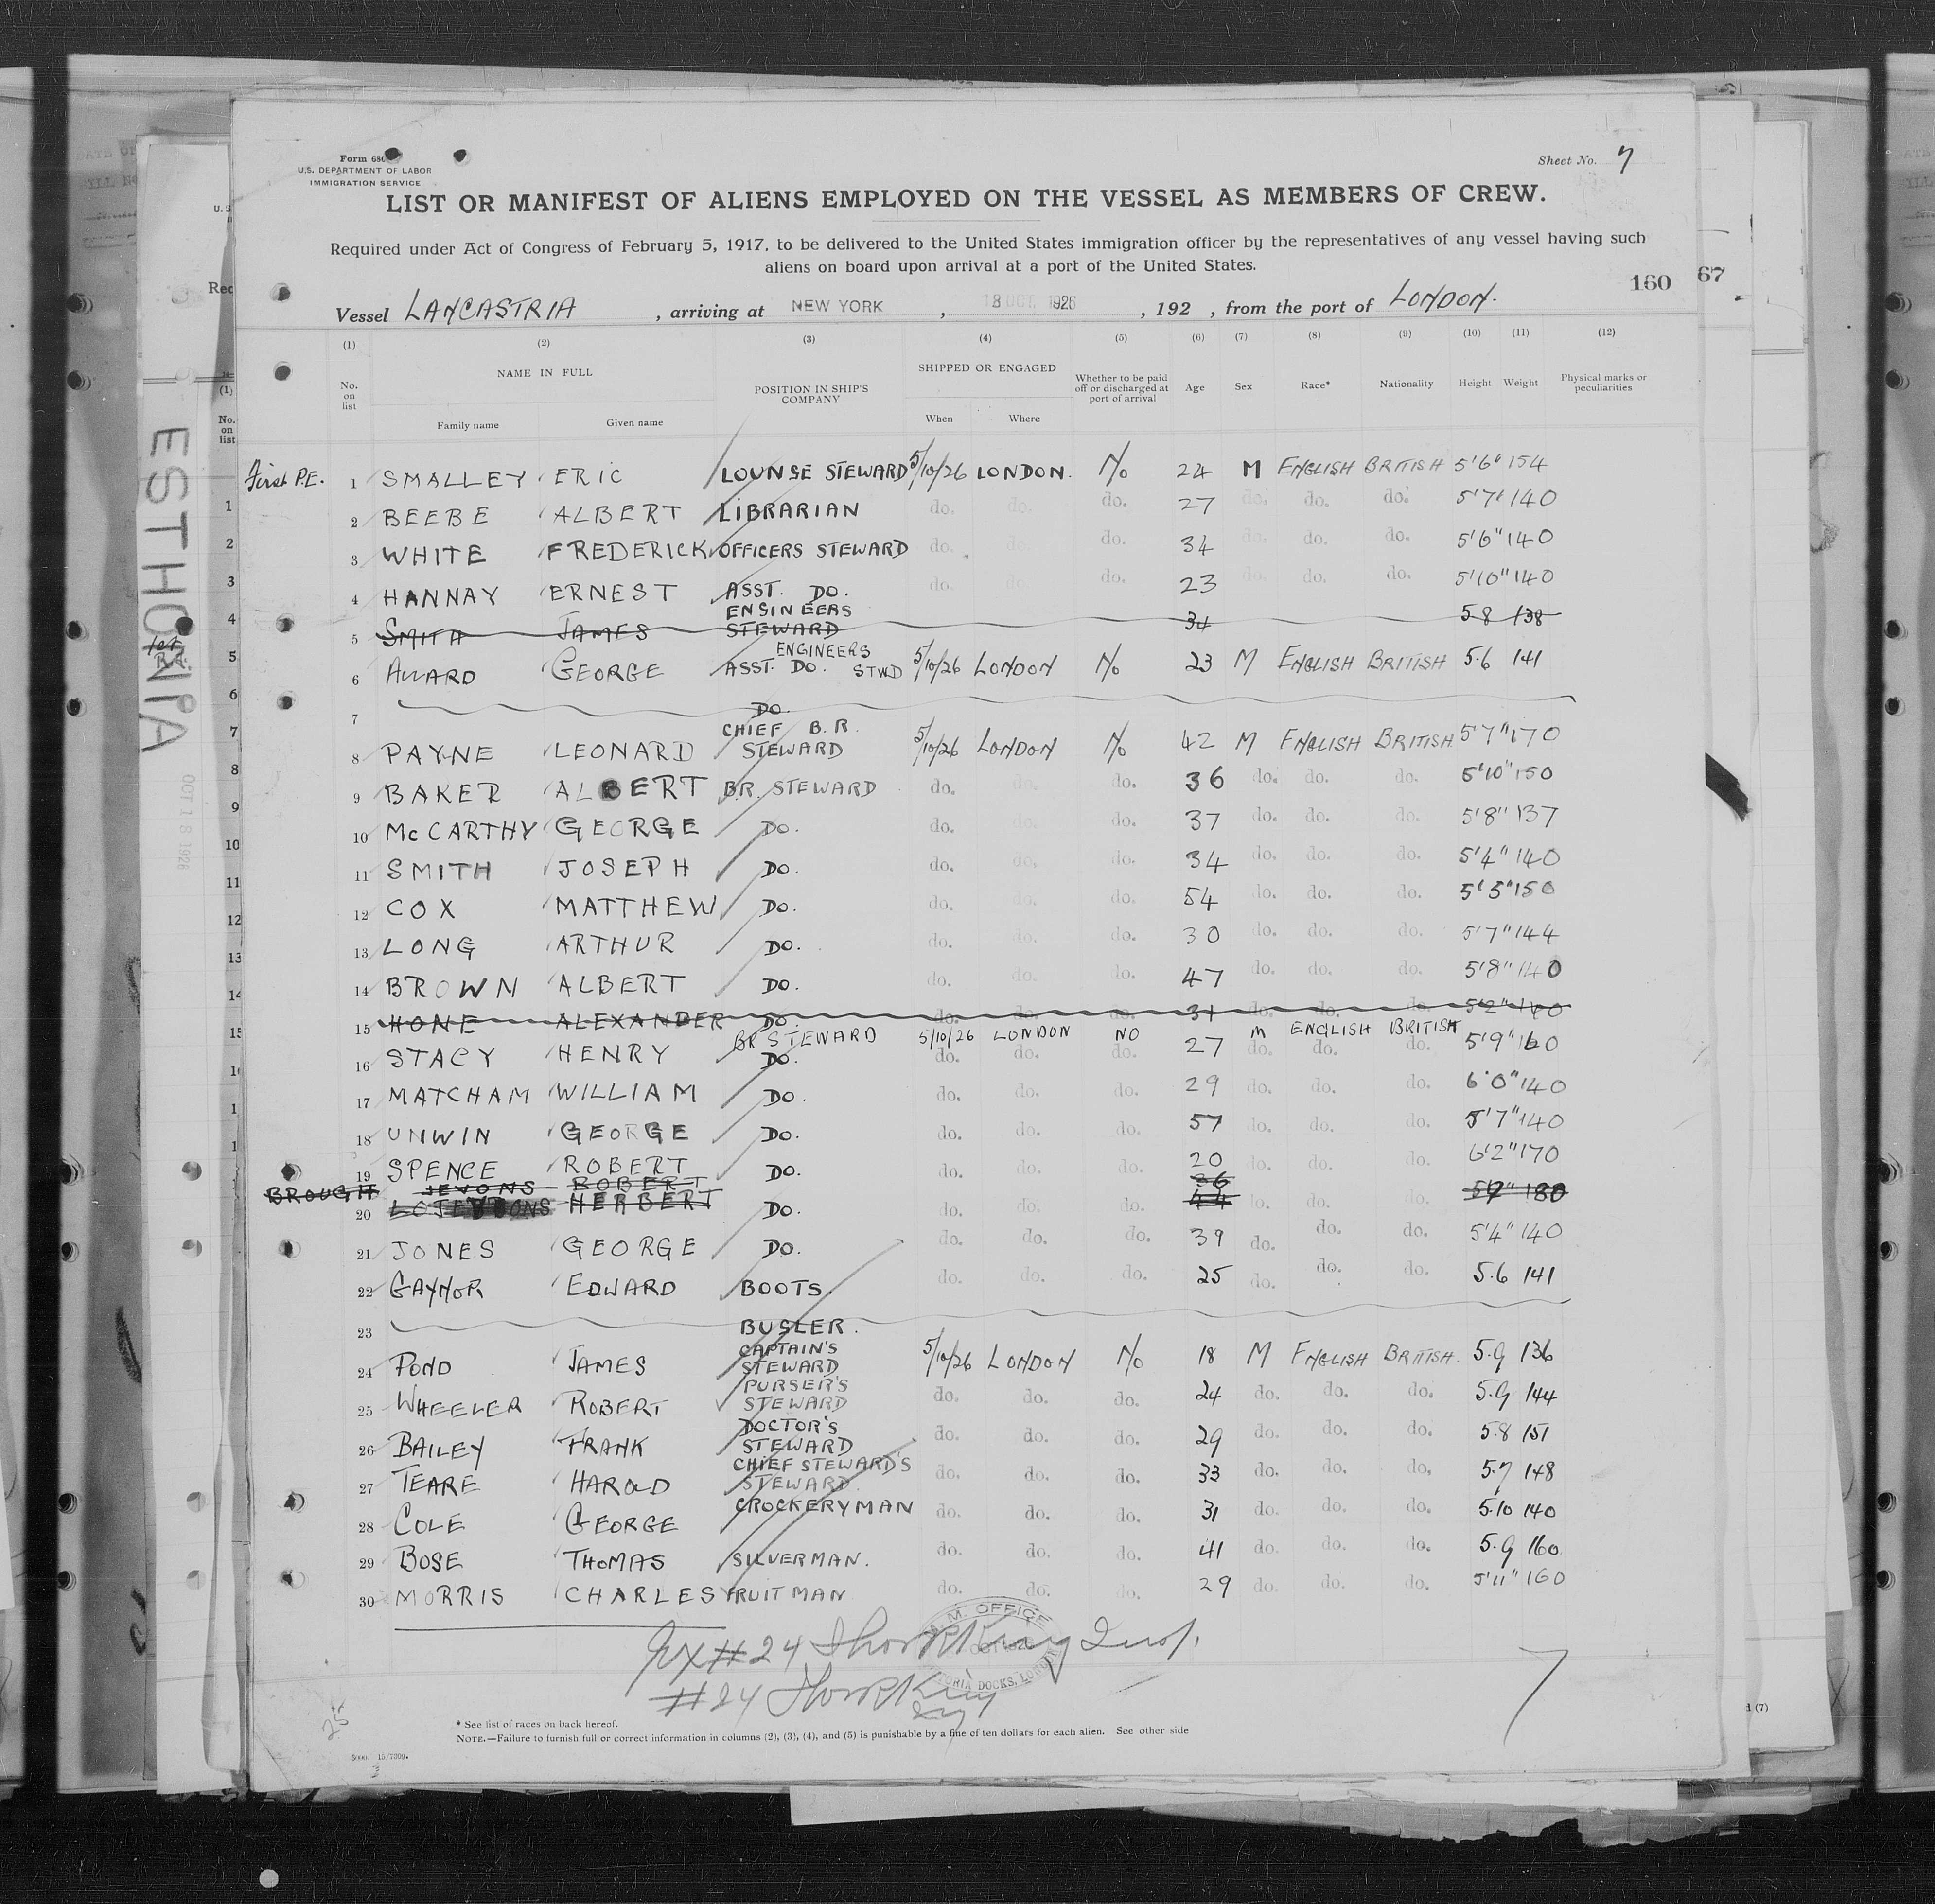 Form 680
U.S. DEPARTMENT OF LABOR
IMMIGRATION SERVICE
Sheet No. 7
LIST OR MANIFEST OF ALIENS EMPLOYED ON THE VESSEL AS MEMBERS OF CREW.
Required under Act of Congress of February 5, 1917, to be delivered to the United States immigration officer by the representatives of any vessel having such
aliens on board upon arrival at a port of the United States.
160 67
Vessel LANCASTRIA, arriving at NEW YORK, 18 OCT 1926, 192 , from the port of LONDON.
(1) (2) (3) (4) (5) (6) (7) (8) (9) (10) (11) (12)
No. on list NAME IN FULL POSITION IN SHIP'S COMPANY SHIPPED OR ENGAGED Whether to be paid off or discharged at port of arrival Age Sex Race* Nationality Height Weight Physical marks or peculiarities
Family name Given name When Where
First P.E. 1 SMALLEY ERIC LOUNGE STEWARD 5/10/26 LONDON. No 24 M ENGLISH BRITISH 5'6" 154
2 BEEBE ALBERT LIBRARIAN do. do. do. 27 do. do. do. 5'7" 140
3 WHITE FREDERICK OFFICERS STEWARD do. do. do. 34 do. do. do. 5'6" 140
4 HANNAY ERNEST ASST. DO. do. do. do. 23 do. do. do. 5'10" 140
5 SMITH JAMES ENGINEERS STEWARD 34 5.8 138
6 ALLARD GEORGE ASST. DO. ENGINEERS STWD 5/10/26 LONDON No 23 M ENGLISH BRITISH 5.6 141
7 DO.
8 PAYNE LEONARD CHIEF B.R. STEWARD 5/10/26 LONDON No 42 M ENGLISH BRITISH 5'7" 170
9 BAKER ALBERT B.R. STEWARD do. do. do. 36 do. do. do. 5'10" 150
10 McCARTHY GEORGE DO. do. do. do. 37 do. do. do. 5'8" 137
11 SMITH JOSEPH DO. do. do. do. 34 do. do. do. 5'4" 140
12 COX MATTHEW DO. do. do. do. 54 do. do. do. 5'5" 150
13 LONG ARTHUR DO. do. do. do. 30 do. do. do. 5'7" 144
14 BROWN ALBERT DO. do. do. do. 47 do. do. do. 5'8" 140
15 HONE ALEXANDER DO. do. do. do. 31 do. do. do. 5'2"
BR STEWARD 5/10/26 LONDON NO M ENGLISH BRITISH
16 STACY HENRY DO. do. do. do. 27 do. do. do. 5'9" 160
17 MATCHAM WILLIAM DO. do. do. do. 29 do. do. do. 6'0" 140
18 UNWIN GEORGE DO. do. do. do. 57 do. do. do. 5'7" 140
19 SPENCE ROBERT DO. do. do. do. 20 do. do. do. 6'2" 170
BROUGH JEVONS ROBERT 36
20 HERBERT DO. do. do. do. 44 do. do. do. 180
21 JONES GEORGE DO. do. do. do. 39 do. do. do. 5'4" 140
22 GAYNOR EDWARD BOOTS. do. do. do. 25 do. do. do. 5.6 141
23 BUGLER.
24 POND JAMES CAPTAIN'S STEWARD 5/10/26 LONDON No 18 M ENGLISH BRITISH. 5.9 136
25 WHEELER ROBERT PURSER'S STEWARD do. do. do. 24 do. do. do. 5.9 144
26 BAILEY FRANK DOCTOR'S STEWARD do. do. do. 29 do. do. do. 5.8 151
27 TEARE HAROLD CHIEF STEWARD'S STEWARD. do. do. do. 33 do. do. do. 5.7 148
28 COLE GEORGE CROCKERYMAN do. do. do. 31 do. do. do. 5.10 140
29 BOSE THOMAS SILVERMAN. do. do. do. 41 do. do. do. 5.9 160
30 MORRIS CHARLES FRUITMAN do. do. do. 29 do. do. do. 5'11" 160
#24
#24
7
25
* See list of races on back hereof.
NOTE.—Failure to furnish full or correct information in columns (2), (3), (4), and (5) is punishable by a fine of ten dollars for each alien. See other side
ESTHONIA
OCT 18 1926